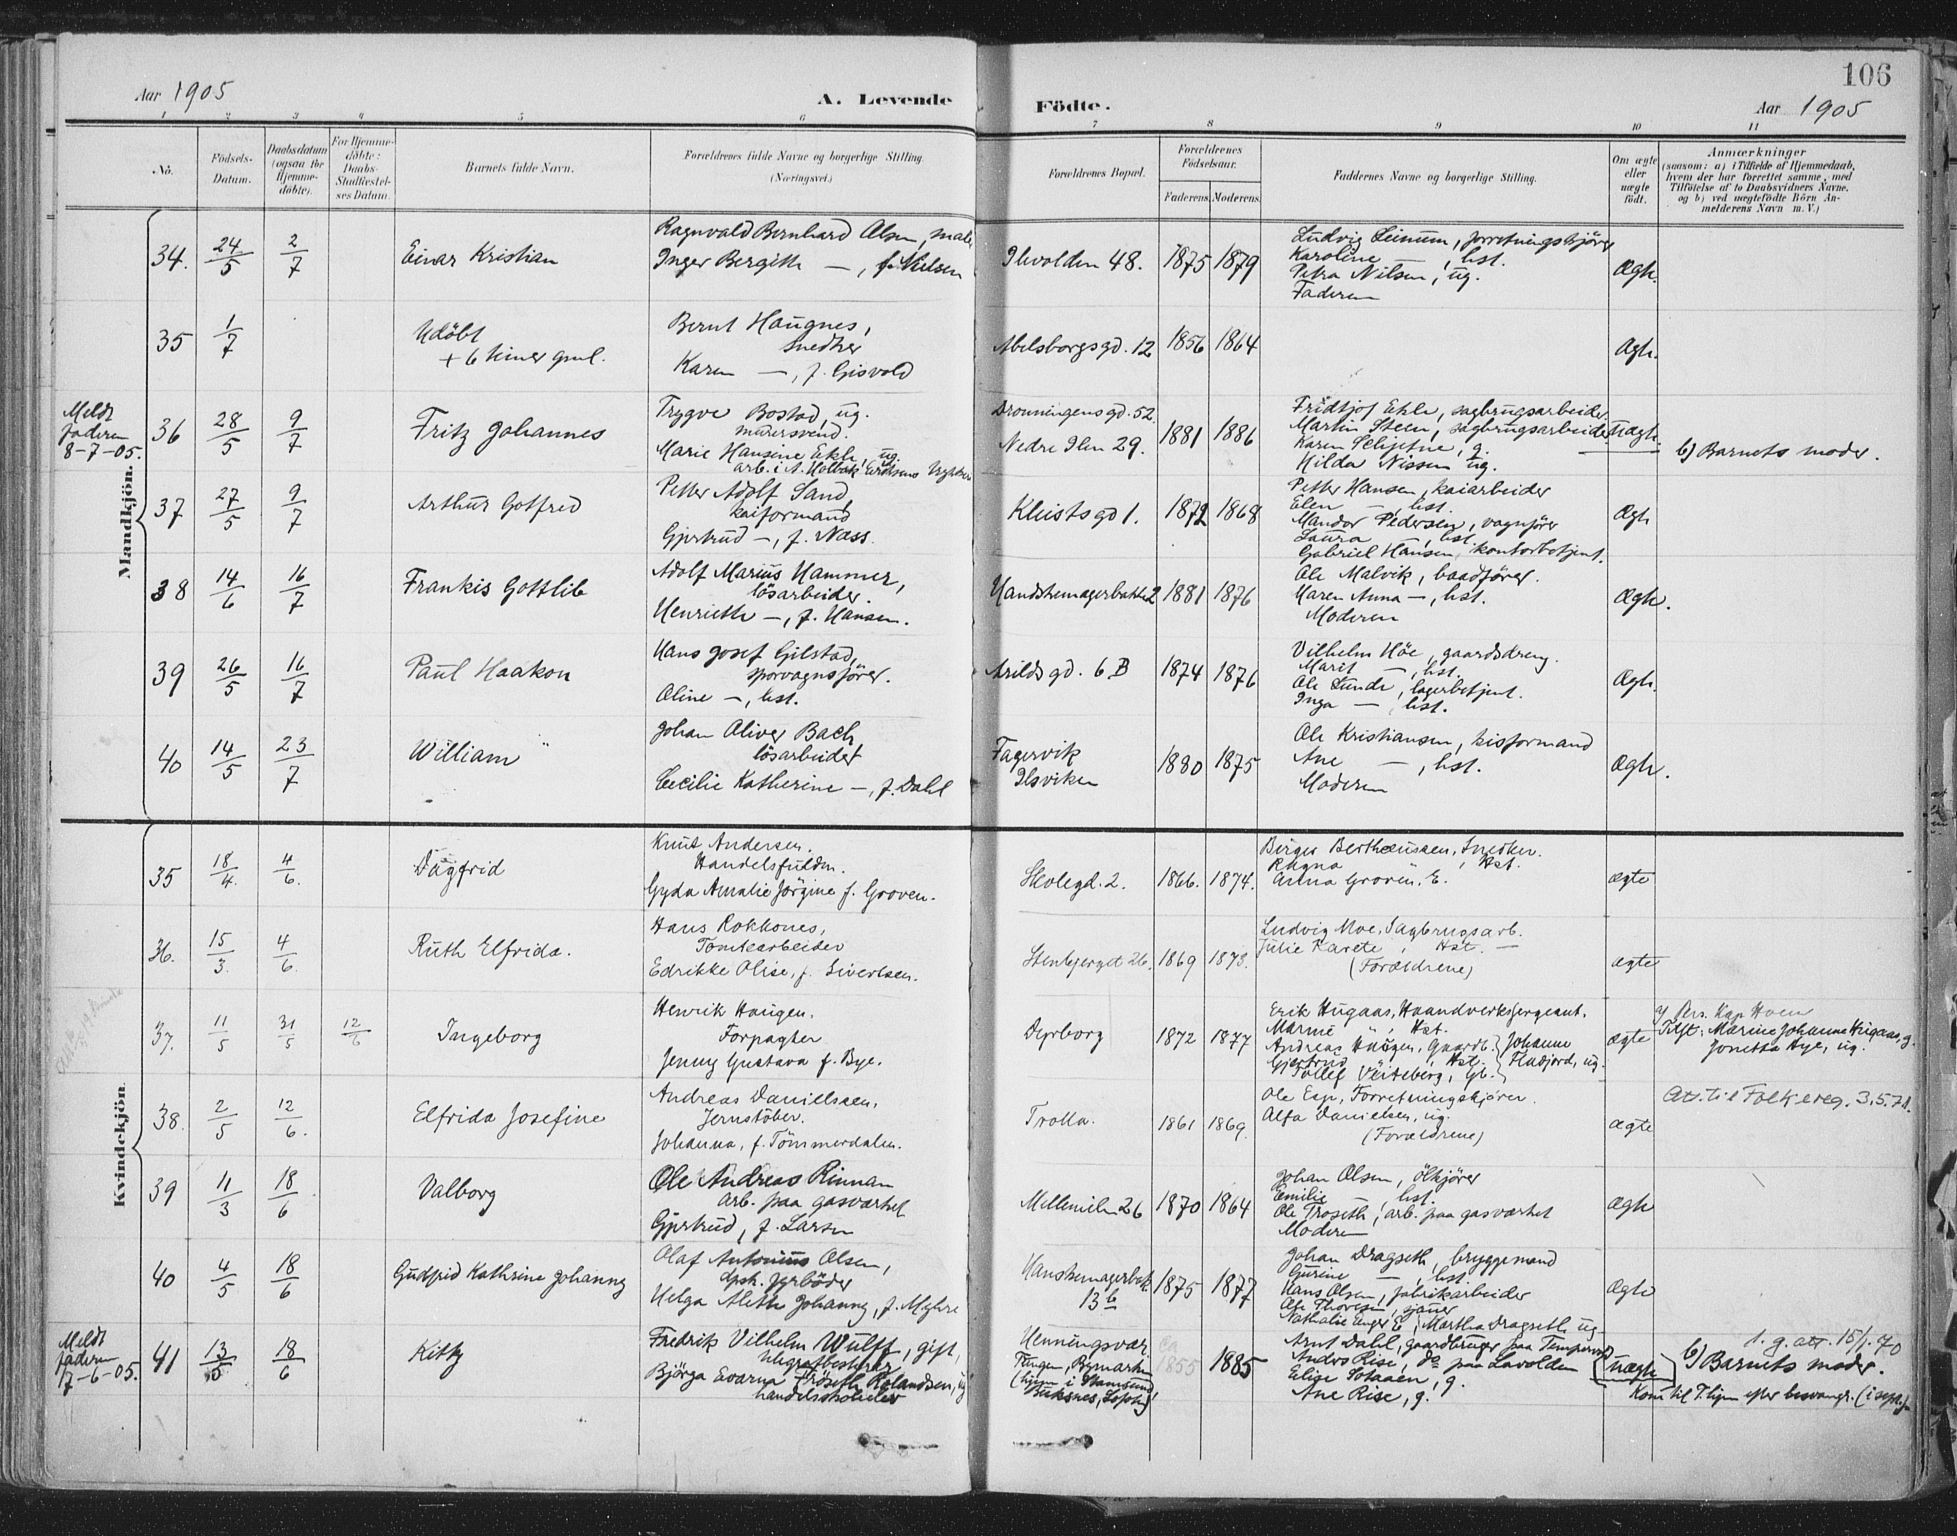 106
Aar 1905
A. Levende
Födte.
Aar 1905
1 2 3 4 5 6 7 8 9 10 11
No.
Födsels-
Datum.
Daabsdatum
(ogsaa for
Hjemme-
döbte).
For Hjemme-
döbte:
Daabs-
Stadfæstel-
ses Datum.
Barnets fulde Navn.
Forældrenes fulde Navne og borgerlige Stilling.
(Næringsvei.)
Forældrenes Bopæl.
Forældrenes
Födselsaar.
Faderens. Moderens.
Faddernes Navne og borgerlige Stilling.
Om ægte
eller
uægte
födt.
Anmærkninger
(saasom: a) i Tilfælde af Hjemmedaab,
hvem der har forrettet samme, med
Tilföielse af to Daabsvidners Navne,
og b) ved uægtefödte Börn An-
melderens Navn m. V.)
Mandkjön.
34. 24/5 2/7 Einar Kristian
Ragnvald Bernhard Olsen, maler
Inger Bergith —, f. Nielsen
Ilevolden 48. 1875 1879
Ludvig Leinum, forretningskjörer
Karoline —, hst.
Petra Nilsen, ug.
Faderen
Ægte.
35 1/7 Udöbt
+ 6 timer gml.
Bernt Haugnes,
snedker
Karen —, f. Gisvold
Abelsborgsgd. 12 1856 1864
Ægte.
Meldt
faderen
8-7-05.
36 28/5 9/7 Fritz Johannes
Trygve Bostad, ug.
murersvend.
Marie Hansine Ekle, ug.
Dronningensgd. 52
Nedre Ilen 29. 1881 1886
Fridtjof Ekle, sagbrugsarbeider
Martin Steen, sagbrugsarbeider
Hilda Nissen ug.
Uægte.
b) Barnets moder.
37 27/5 9/7 Arthur Gotfred
Petter Adolf Sand,
kaiformand
Gjertrud —, f. Næss.
Kleistsgd 1. 1872 1868
Petter Hansen, kaiarbeider
Elen —, hst.
Mandor Pedersen, vognförer
Laura —, hst.
Gabriel Hansen, kontorbetjent.
Ægte
38 14/6 16/7 Frankis Gottlib
Adolf Marius Hammer,
lösarbeider.
Henriette —, f. Hansen.
Handskemagerbakken 2 1881 1876
Ole Malvik, baadförer.
Maren Anna —, hst.
Moderen
Ægte.
39 26/5 16/7 Paul Haakon
Hans Josef Gilstad,
sporvagnsförer.
Oline —, hst.
Arildsgd. 6 B 1874 1876
Vilhelm Höe, gaardsdreng.
Marit —, hst.
Ole Lunde, lagerbetjent.
Inga —, hst.
Ægte.
40 14/5 23/7 William
Johan Oliver Bach
lösarbeider
Cecilie Katherine —, f. Dahl
Fagervik
Ilsviken 1880 1875
Ole Kristiansen, kisformand
Ane —, hst.
Moderen
Ægte.
Kvindekjön.
35 18/4. 4/6. Dagfrid
Knut Andersen.
Handelsfuldm.
Gyda Amalie Jörgine f. Groven.
Skolegd. 2. 1866. 1874.
Birger Bertheussen, Snedker.
Ragna " , Hst.
Anna Groven, E.
ægte
36. 15/3. 4/6. Ruth Elfrida.
Hans Rokkones,
Tomtearbeider
Edrikke Olise, f. Sivertsen.
Stenberget 26. 1869 1873.
Ludvig Moe, Sagbrugsarb.
Julie Karete , Hst. —
(Forældrene)
ægte
37. 11/5 31/5 12/6 Ingeborg
Henrik Haugen.
Forpagter
Jenny Gustava f. Bye.
Dyrborg 1872 1877
Erik Hugaas, Haandverkssergeant.
Marine " , Hst.
Andreas Haugen, Gaardb.
Gjertrud " , Hst.
Tollef Veiteberg, Gb.
Johanne
Fladjord, ug.
ægte
Tilst: Marine Johanna Hugaas, g.
Jonetta Bye, ug.
38. 2/5 12/6. Elfrida Josefine
Andreas Daniellsen,
Jernstöber.
Johanna, f. Tömmerdalen.
Trolla. 1861 1869.
Ole Esp, Forretningskjörer.
Alfa Danielsen, ug.
(Forældrene)
ægte
Att. til Folkereg. 3.5.71.
39 11/3 18/6 Valborg
Ole Andreas Rinnan
arb. paa gasværket
Gjertrud, f. Larsen
Mellemilen 26 1870 1864
Johan Olsen, ölkjörer
Emilie —, hst.
Ole Troseth, arb. paa gasværket
Moderen
Ægte
40 4/5 18/6 Gudfrid Kathrine Johanna
Olaf Antonius Olsen,
dpsk. fyrböder
Helga Aleth Johanna, f. Myhre
Hanskemagerbak.
13 b 1875 1877
Johan Dragseth, bryggemand
Gurine —, hst.
Hans Olsen, fabrikarbeider
Ole Thoresen, sjauer
Nathalie Unger E, Martha Dragseth ug.
Ægte
Meldt
faderen
7-6-05.
41 13/5 18/6 Kitty
Fredrik Vilhelm Wulff, gift,
telegrafbestyrer
Bjørga Evarna Fröseth Rolandsen, ug
handelsholder
Henningsvær.
1855 1885
Arnt Dahl, gaardbruger paa Tempervold
Anders Rise, do paa Lavolden
Elise Solaaen, g.
Ane Rise, g.
Uægte
1. g. att. 15/1.70
b) Barnets moder.